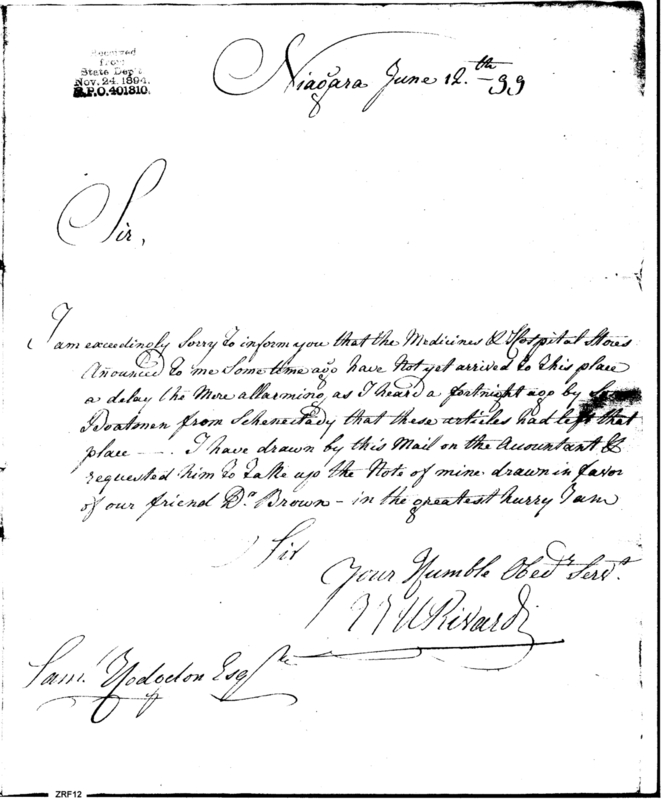 Received
from
State Dep't
Nov. 24. 1894.
R.P.O. 401810.
Niagara June 12.th - 99
Sir,
I am exceedingly Sorry to inform you that the Medicines & Hospital Stores
Anounced to me Some time ago have Not yet arrived to this place
a delay the More allarming, as I heard a fortnight ago by
Boatmen from Schenectady that these articles had left that
place —. I have drawn by this Mail on the Acountant &
requested him to take up the Note of mine drawn in favor
of our friend Dr. Brown - in the greatest hurry I am
Sir
Your Humble Obedt. Servt.
JJU Rivardi
Saml. Hodgdon Esqre
ZRF12